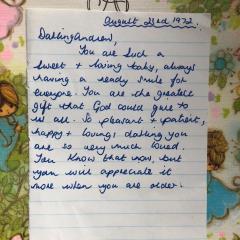 August 23rd 1972
Darling Andrew,
You are such a
sweet + loving baby, always
having a ready smile for
everyone. You are the greatest
gift that God could give to
us all. So pleasant + patient,
happy + loving, darling you
are so very much loved.
You know that now, but
you will appreciate it
more when you are older.